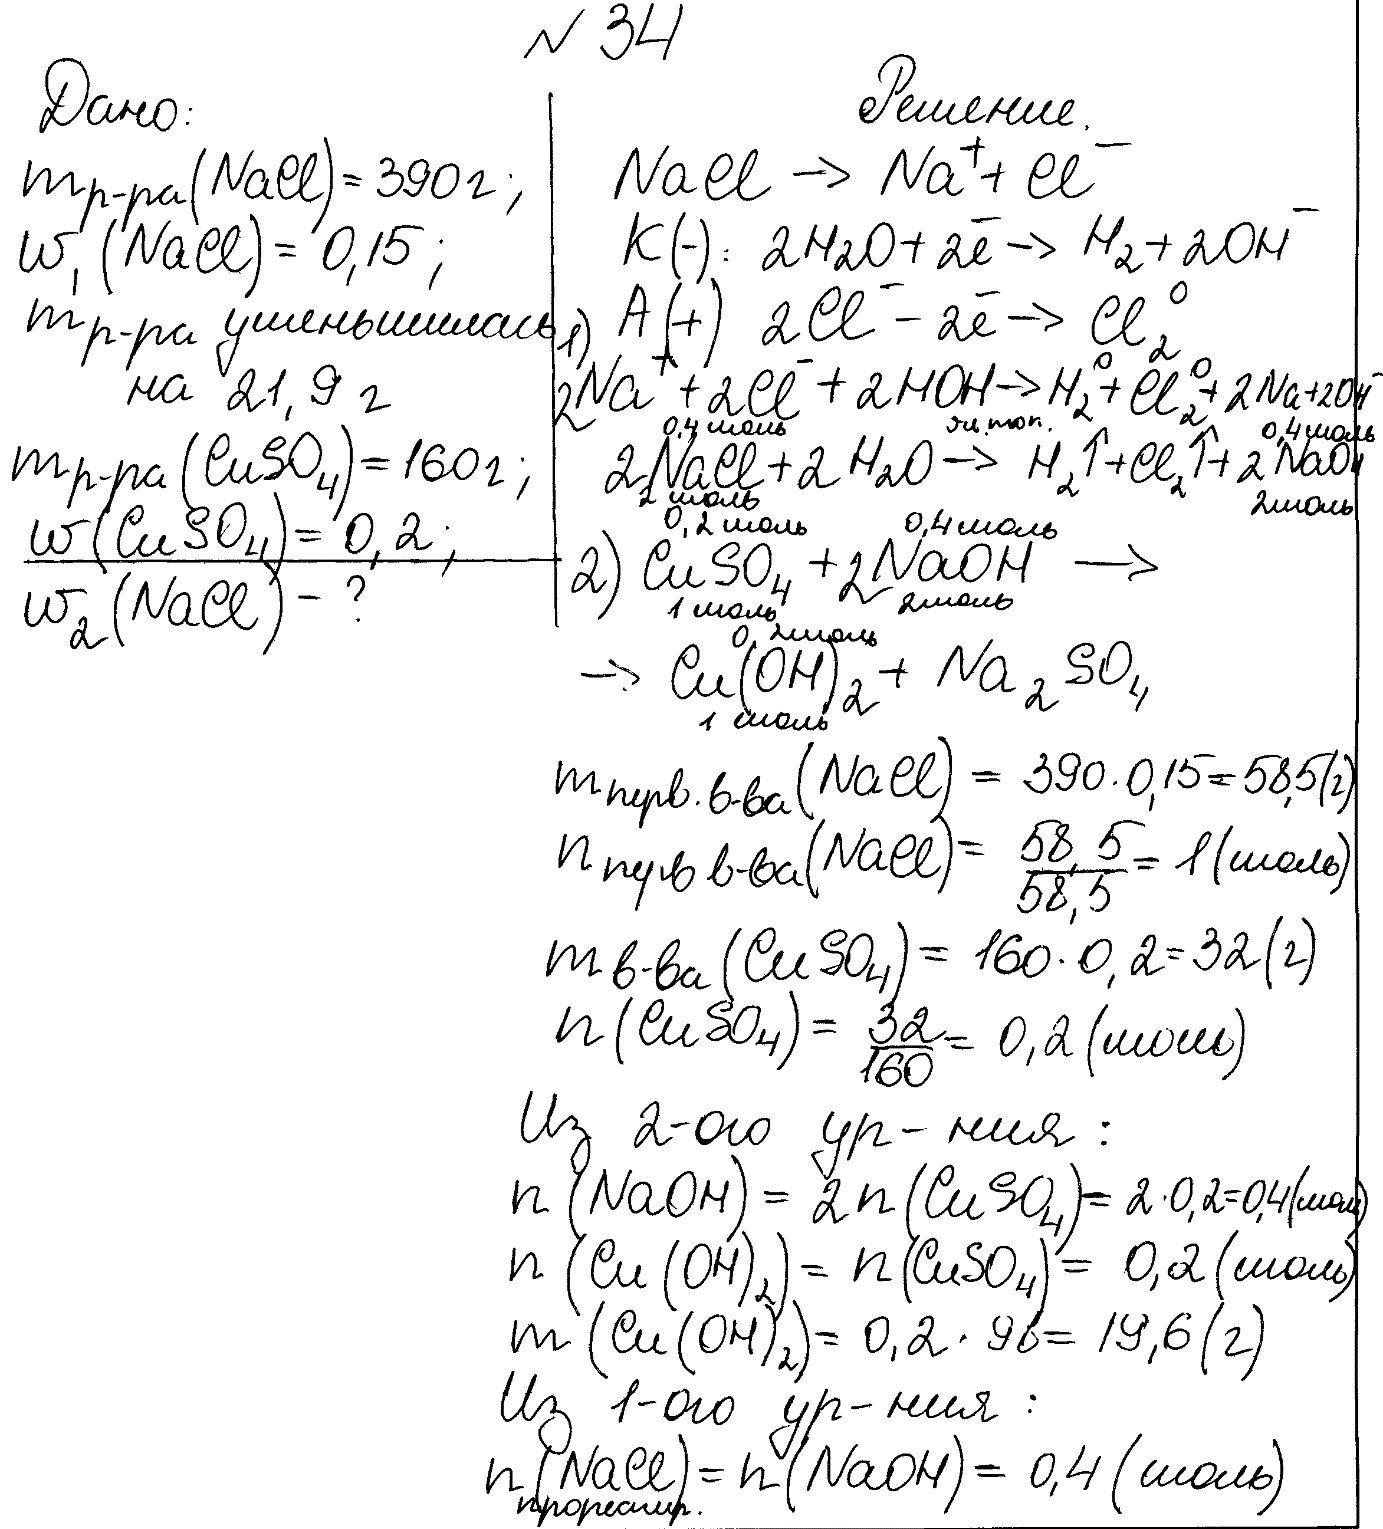 № 34
Дано:
m р-ра (NaCl) = 390 г;
w₁ (NaCl) = 0,15;
m р-ра уменьшилась
на 21,9 г
m р-ра (CuSO₄) = 160 г;
w (CuSO₄) = 0,2;
w₂ (NaCl) - ?
Решение.
NaCl → Na⁺ + Cl⁻
K(-): 2H₂O + 2ē → H₂ + 2OH⁻
1) A(+) 2Cl⁻ - 2ē → Cl₂⁰
2Na⁺ + 2Cl⁻ + 2HOH → H₂⁰ + Cl₂⁰ + 2Na + 2OH⁻
0,4 моль эл. ток. 0,4 моль
2NaCl + 2H₂O → H₂↑ + Cl₂↑ + 2NaOH
2 моль 2 моль
0,2 моль 0,4 моль
2) CuSO₄ + 2NaOH →
1 моль 2 моль
0,2 моль
→ Cu(OH)₂ + Na₂SO₄
1 моль
m перв. в-ва (NaCl) = 390 · 0,15 = 58,5 (г)
n перв в-ва (NaCl) = 58,5 / 58,5 = 1 (моль)
m в-ва (CuSO₄) = 160 · 0,2 = 32 (г)
n (CuSO₄) = 32 / 160 = 0,2 (моль)
Из 2-ого ур-ния:
n (NaOH) = 2n (CuSO₄) = 2 · 0,2 = 0,4 (моль)
n (Cu(OH)₂) = n (CuSO₄) = 0,2 (моль)
m (Cu(OH)₂) = 0,2 · 98 = 19,6 (г)
Из 1-ого ур-ния:
n (NaCl) = n (NaOH) = 0,4 (моль)
прореагир.